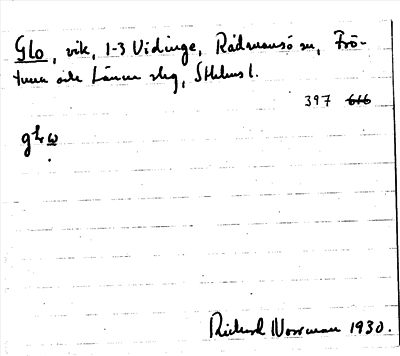 Glo, vik, 1-3 Vidinge, Rådmansö sn, Frö-
tuna och Länna slg, Sthlms l.
397 616
Richard Norrman 1930.